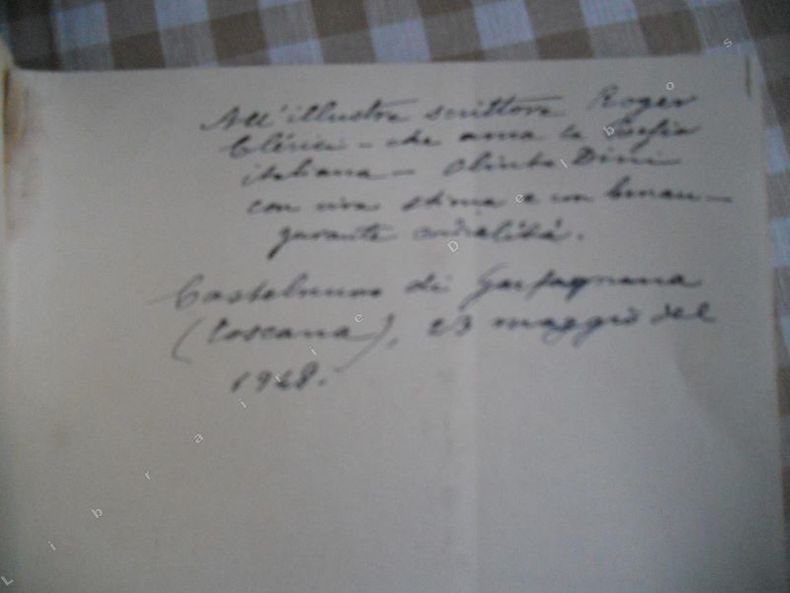 All'illustre scrittore Roger
Clérici - che ama la Poesia
italiana - Olinto Dini
con viva stima e con benau-
gurante cordialità.
Castelnuovo di Garfagnana
(Toscana), 23 maggio del
1948.
Librairie Delbos